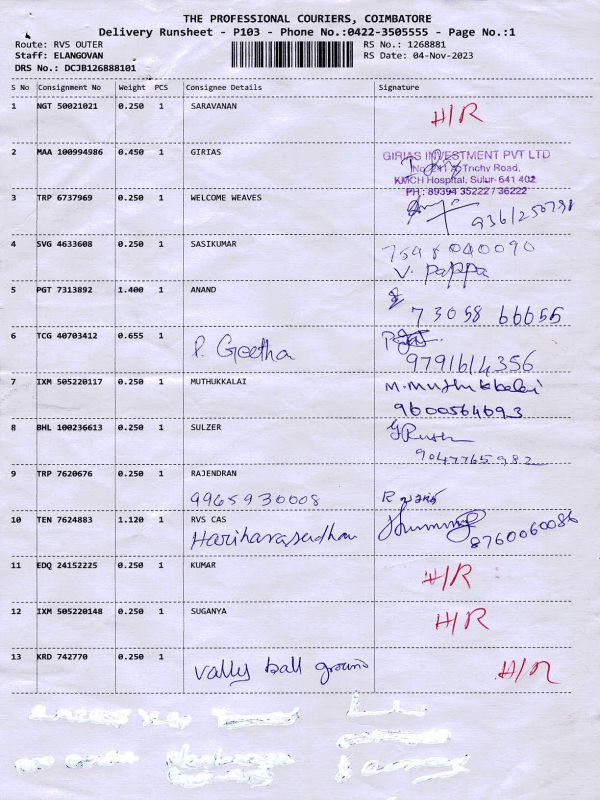 THE PROFESSIONAL COURIERS, COIMBATORE
Delivery Runsheet - P103 - Phone No.:0422-3505555 - Page No.:1
Route: RVS OUTER RS No.: 1268881
Staff: ELANGOVAN RS Date: 04-Nov-2023
DRS No.: DCJB126888101
S No Consignment No Weight PCS Consignee Details Signature
1 NGT 50021021 0.250 1 SARAVANAN
H/R
2 MAA 100994986 0.450 1 GIRIAS
GIRIAS INVESTMENT PVT LTD
Trichy Road,
KMCH Hospital, Sulur-641 402
PH : 89394 35222 / 36222
3 TRP 6737969 0.250 1 WELCOME WEAVES
4 SVG 4633608 0.250 1 SASIKUMAR
7598040090
V. Pappa
5 PGT 7313892 1.400 1 ANAND
73058 66655
6 TCG 40703412 0.655 1
P. Geetha
9791614356
7 IXM 505220117 0.250 1 MUTHUKKALAI
M. Muthukkalai
9600564693
8 BHL 100236613 0.250 1 SULZER
9047765982
9 TRP 7620676 0.250 1 RAJENDRAN
9965930008 R
10 TEN 7624883 1.120 1 RVS CAS
Hariharasudhan 8760060086
11 EDQ 24152225 0.250 1 KUMAR
H/R
12 IXM 505220148 0.250 1 SUGANYA
H/R
13 KRD 742770 0.250 1
vally ball ground H/R